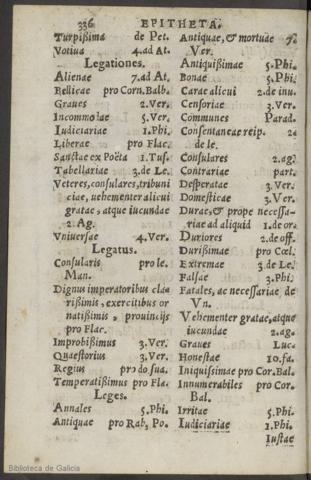 336 EPITHETA.
Turpißima de Pet.
Votiua 4.ad At.
Legationes.
Alienae 7.ad At.
Bellicae pro Corn.Balb.
Graues 2.Ver.
Incommodae 5.Ver.
Iudiciariae 1.Phi.
Liberae pro Flac.
Sanctae ex Poëta 1.Tus.
Tabellariae 3.de Le.
Veteres, consulares, tribuni
ciae, vehementer alicui
gratae, atque iucundae
2.Ag.
Vniuersae 4.Ver.
Legatus.
Consularis pro le.
Man.
Dignus imperatoribus cla
rißimis, exercitibus or
natißimis, prouincijs
pro Flac.
Improbißimus 3.Ver.
Quaestorius 3.Ver.
Regius pro do sua.
Temperatißimus pro Fla.
Leges.
Annales 5.Phi.
Antiquae pro Rab, Po.
Antiquae, & mortuae
Ver.
Antiquißimae 5.Phi.
Bonae 5.Phi.
Carae alicui 2.de inu.
Censoriae 3.Ver.
Communes Parad.
Consentaneae reip. 2.
de le.
Consulares 2.ag.
Contrariae part.
Desperatae 3.Ver.
Domesticae 3.Ver.
Durae, & prope necessa-
riae ad aliquid 1.de or.
Duriores 2.de off.
Durißimae pro Cœl.
Extremae 3.de Le.
Falsae 3.Phi.
Fatales, ac necessariae de
Vn.
Vehementer gratae, atque
iucundae 2.ag.
Graues Luc.
Honestae 10.fa.
Iniquissimae pro Cor.Bal.
Innumerabiles pro Cor.
Bal.
Irritae 5.Phi.
Iudiciariae 1.Phi.
Iustae
Biblioteca de Galicia